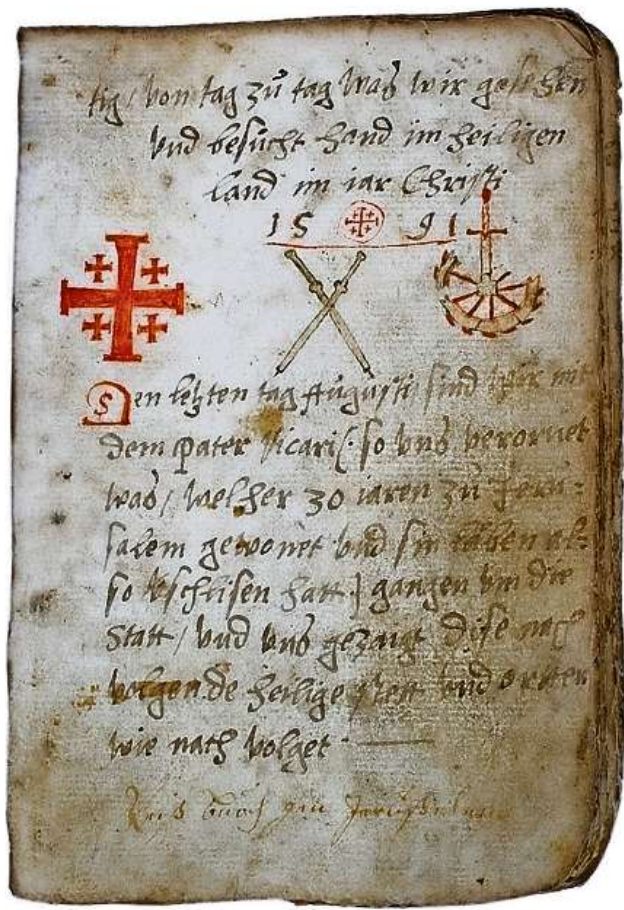 tig / von tag zů tag was wir gesehen
vnd besůcht hand im heiligen
land im iar Christi
15 91
Den letzten tag Augusti sind wir mit
dem Pater Vicari (: so vns verornet
was / welcher 30 iaren zů Jeru=
salem gewonet vnd sin läben al=
so bschlisen hatt :) gangen vm die
Statt / vnd vns gezaigt dise nach
volgende heilige stett vnd orrter
wie nach volget
Reis buoch Jerusalem